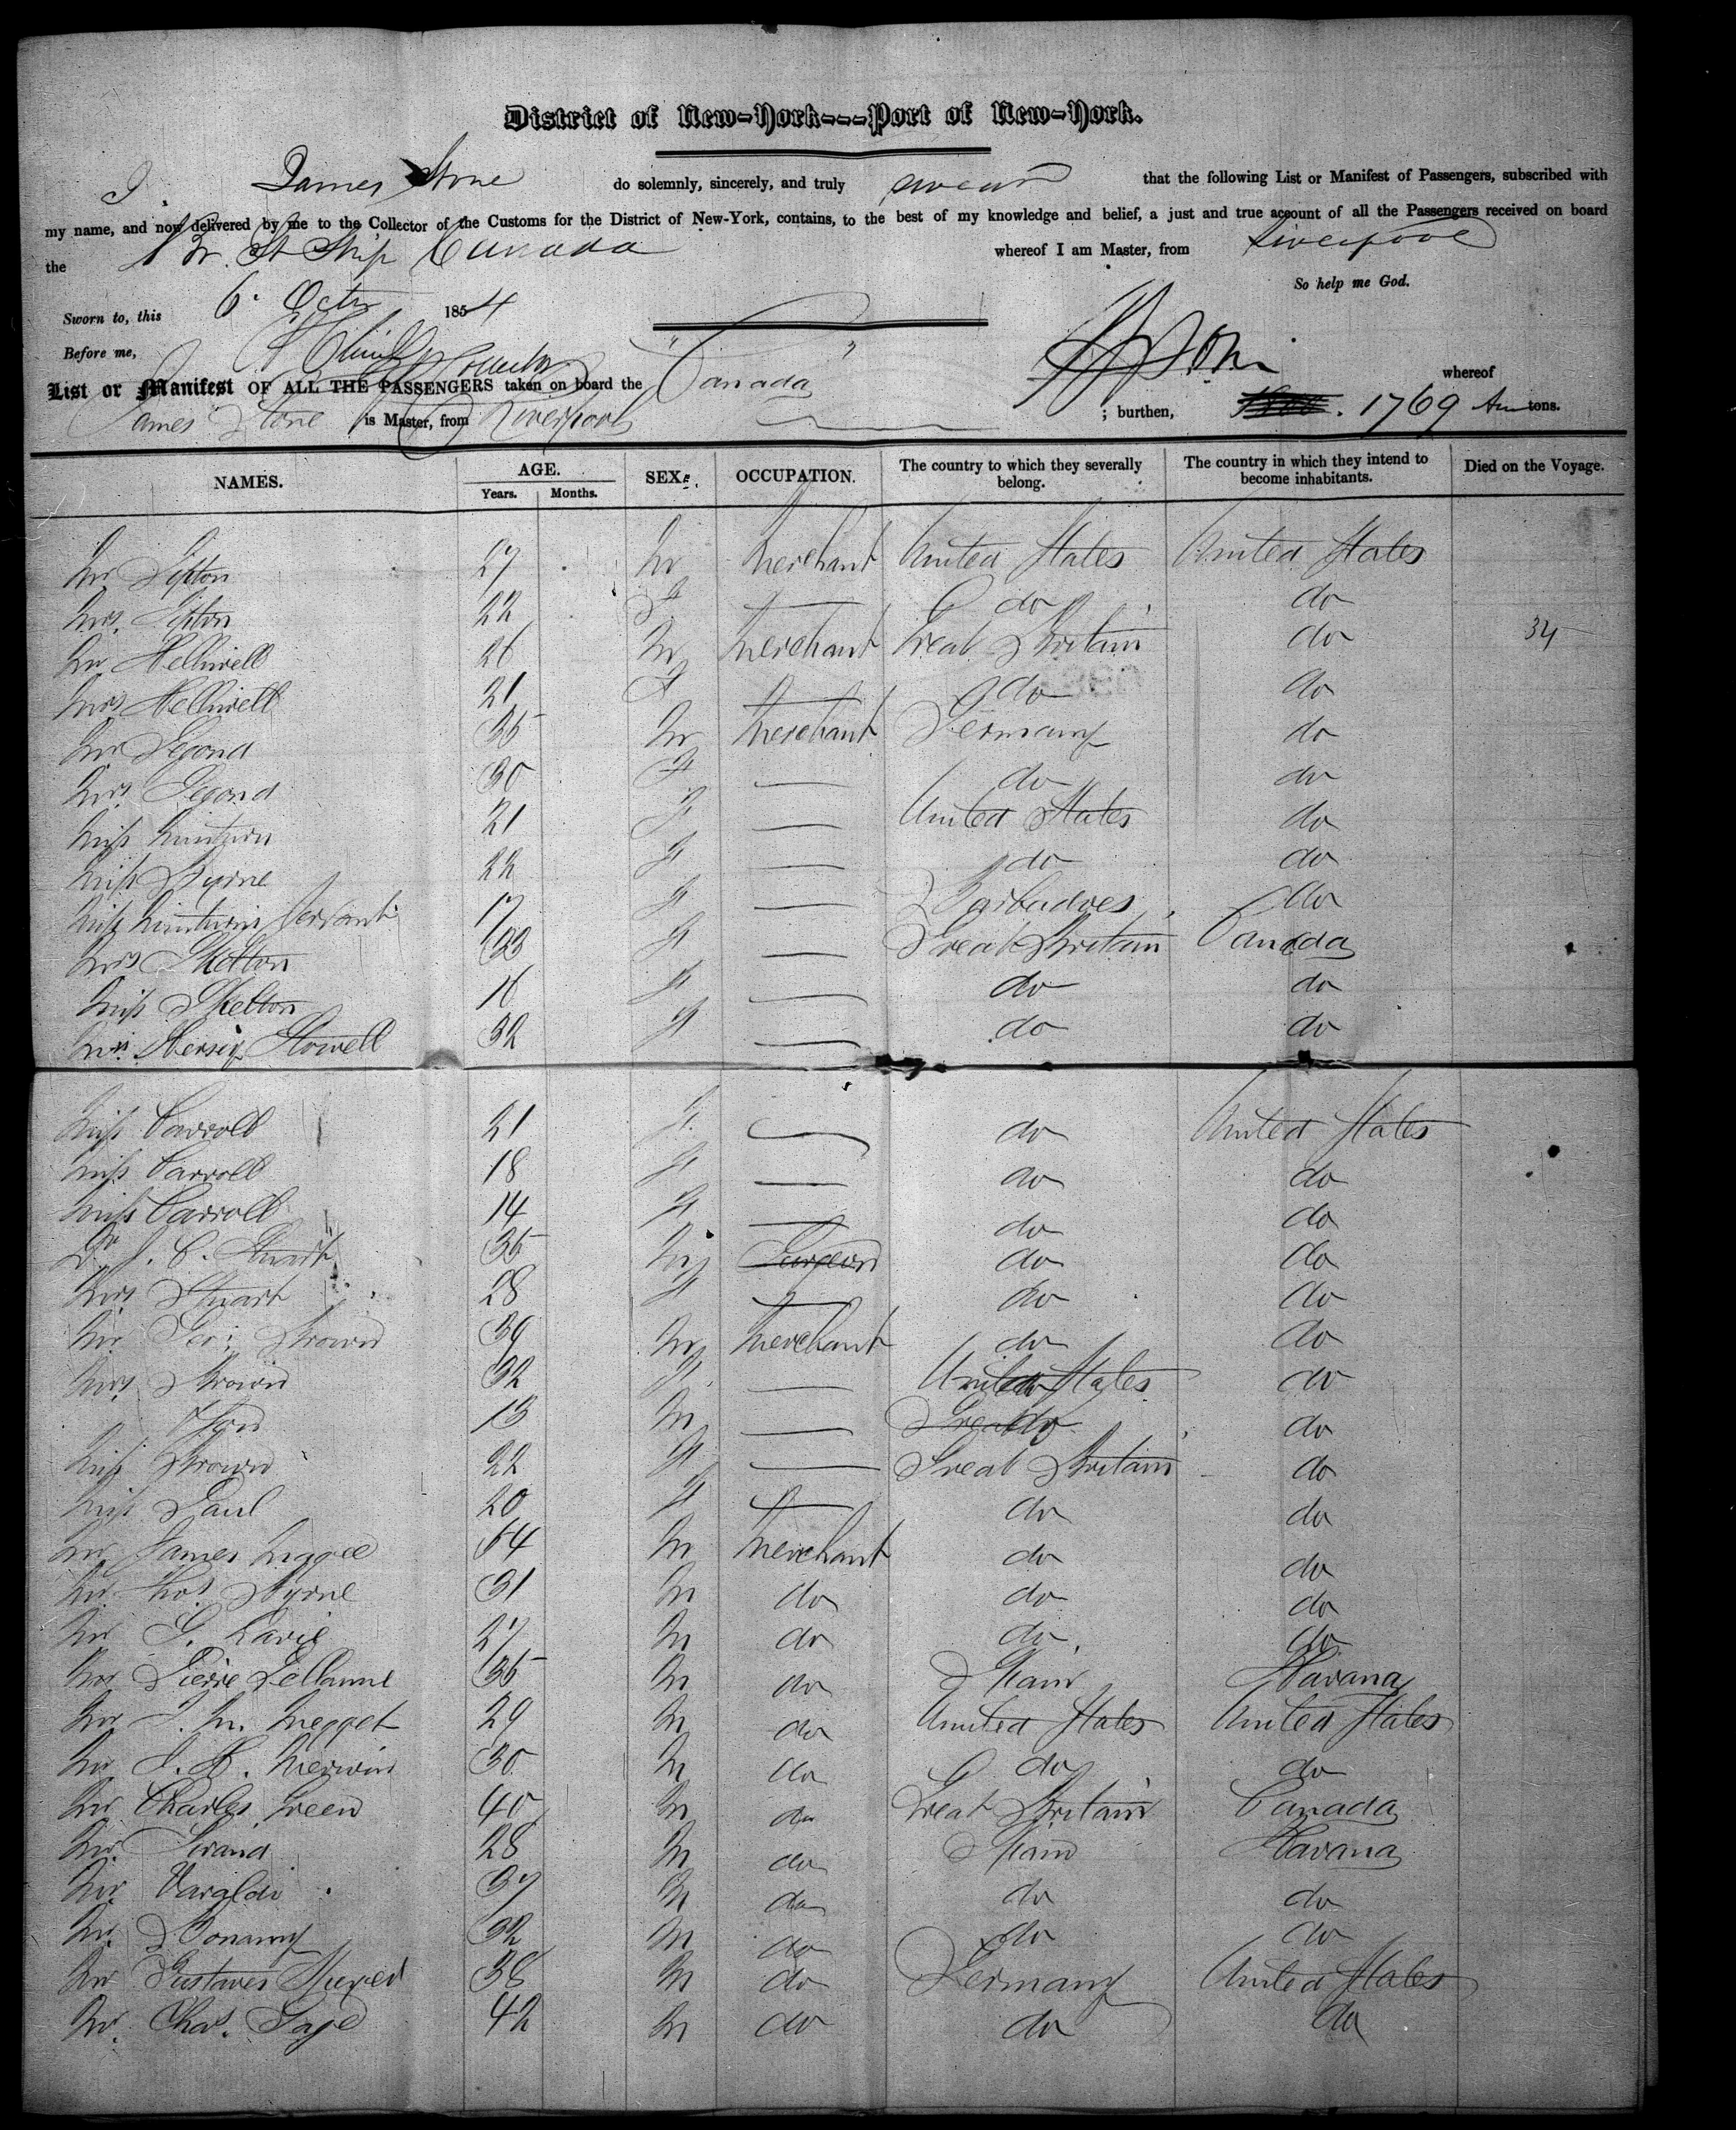 District of New-York---Port of New-York.
I James Stone do solemnly, sincerely, and truly swear that the following List or Manifest of Passengers, subscribed with
my name, and now delivered by me to the Collector of the Customs for the District of New-York, contains, to the best of my knowledge and belief, a just and true account of all the Passengers received on board
the Br. St Ship Canada whereof I am Master, from Liverpool
So help me God.
Sworn to, this 6. Octr 1854
Before me,
List or Manifest OF ALL THE PASSENGERS taken on board the "Canada" whereof
James Stone is Master, from Liverpool ; burthen, 1769 Am tons.
NAMES. AGE. Years. Months. SEX. OCCUPATION. The country to which they severally belong. The country in which they intend to become inhabitants. Died on the Voyage.
Mr 27 M Merchant United States United States
Mrs. 22 F — do do
Mr Helliwell 26 M Merchant Great Britain do 34
Mrs Helliwell 21 F — do do
Mr Segond 35 M Merchant Germany do
Mrs. Segond 30 F — do do
Miss Minturn 21 F — United States do
Miss Byrne 22 F — do do
Miss Minturns Servant 17 F — Barbadoes do
Mrs Skelton F — Great Britain Canada
Miss Skelton 16 F — do do
Mrs. Stowell 32 F — do do
Miss Carroll 21 F — do United States
Miss Carroll 18 F — do do
Miss Carroll 14 F — do do
Dr J. C. Stuart 35 M Surgeon do do
Mrs Stuart 28 F — do do
Mr Geo: Brown 39 M Merchant do do
Mrs Brown 32 F — United States do
13 M — do do
Miss Brown 22 F — Great Britain do
Miss Paul 20 F — do do
Mr James 54 M Merchant do do
Mr Thos Byrne 31 M do do do
Mr G. 27 M do do. do
Mr Pierre 35 M do Spain Havana
Mr J. M. Megget 29 M do United States United States
Mr J. H. Merwin 30 M do do do
Mr Charles Green 40 M do Great Britain Canada
Mr. 28 M do Spain Havana
Mr Varaldi 37 M do do do
Mr. Bonamy 32 M do do do
Mr Gustaves 38 M do Germany United States
Mr. Chas. Sage 42 M do do do